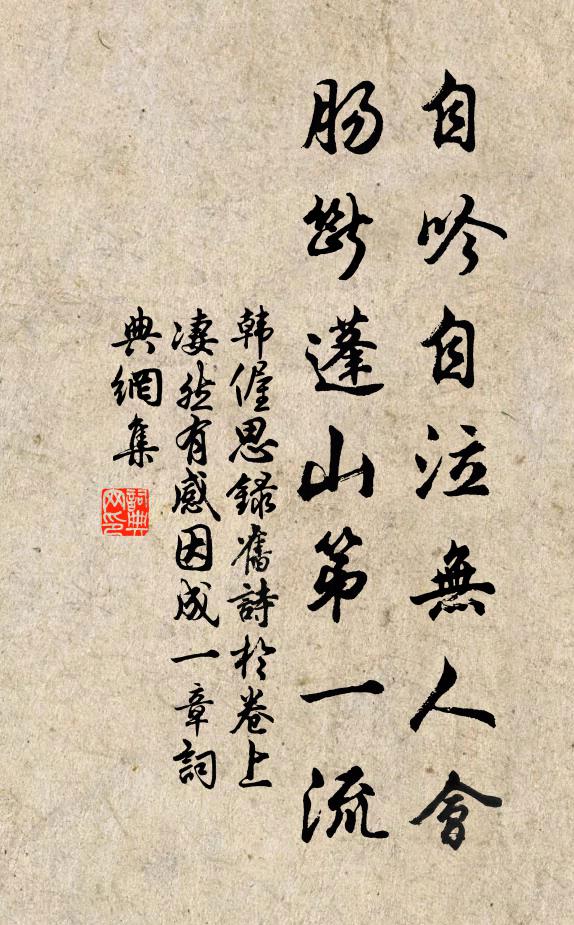 自吟自泣無人會
腸斷蓬山第一流
韓偓思錄舊詩於卷上
凄然有感因成一章詞
典網集
詞典
网印